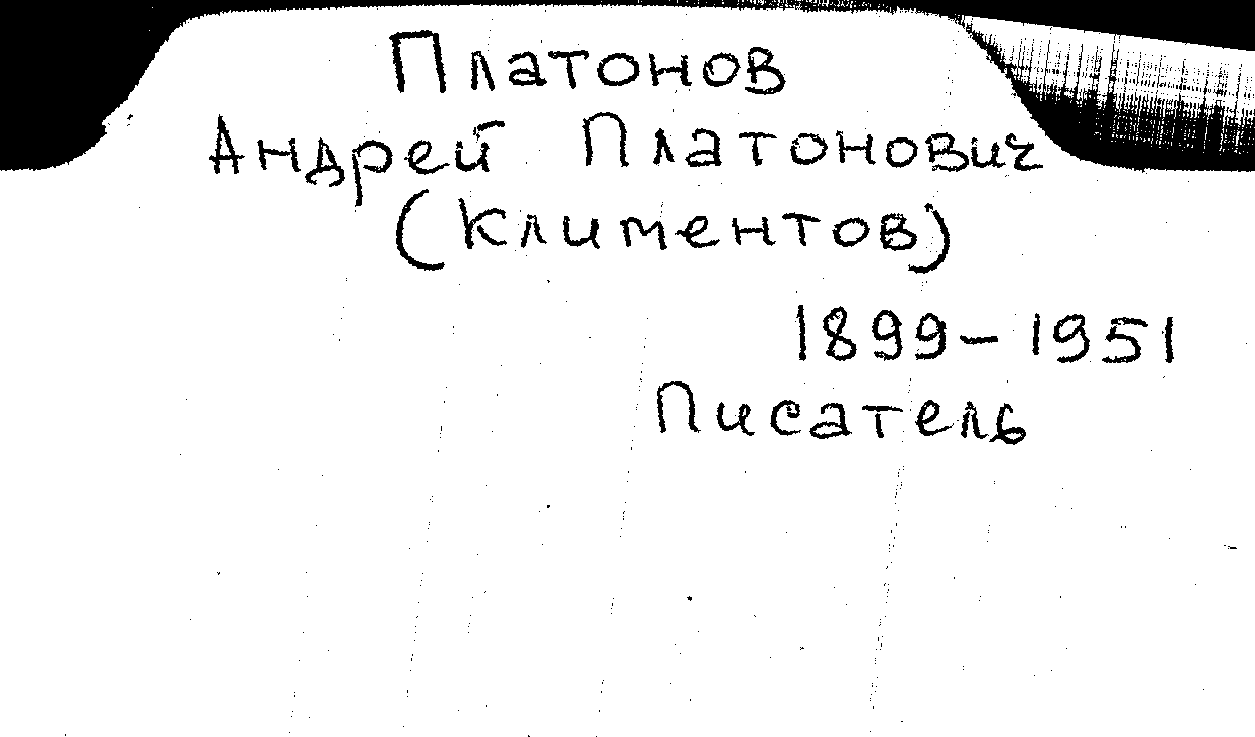 Платонов
Андрей Платонович
(Климентов)
1899-1951
Писатель